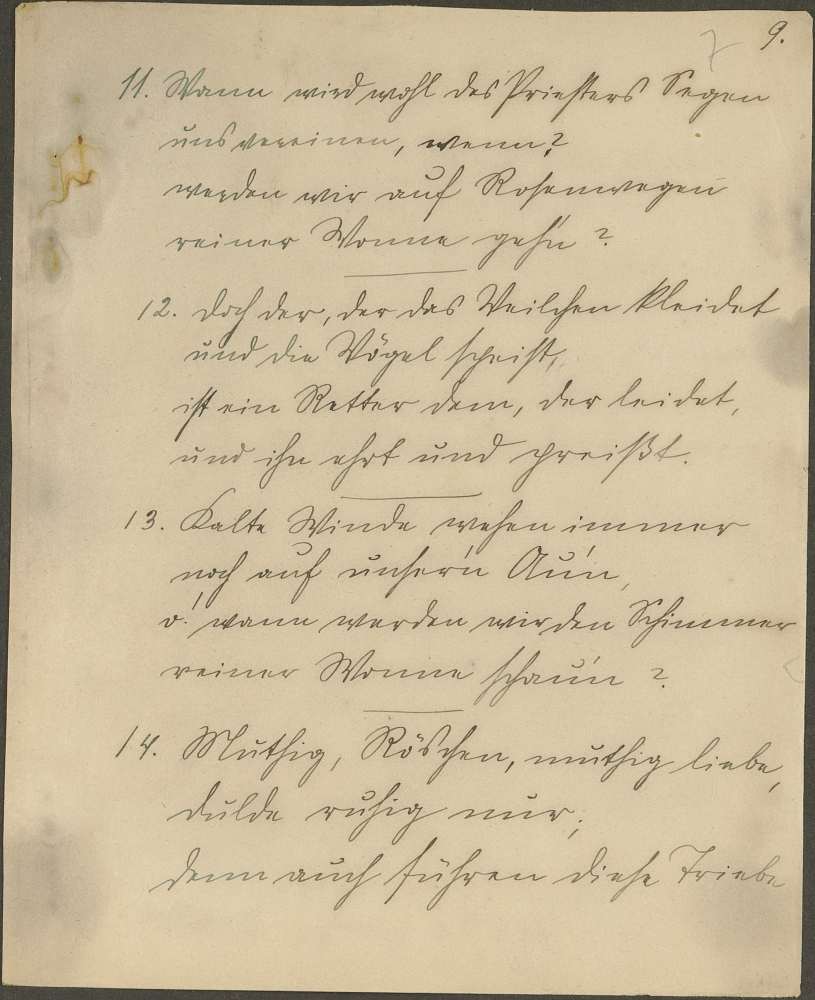 9.
11. Wann wird wohl des Priesters Segen
uns vereinen, wenn?
werden wir auf Rosenwegen
reiner Wonne geh'n?
12. doch der, der das Veilchen kleidet
und die Vögel speist,
ist ein Retter dem, der leidet,
und ihn ehrt und preißt.
13. Kalte Winde wehen immer
noch auf unser'n Au'n,
o! wann werden wir den Schimmer
reiner Wonne schau'n?
14. Muthig, Röschen, muthig liebe,
dulde ruhig nur;
denn auch führen diese Triebe